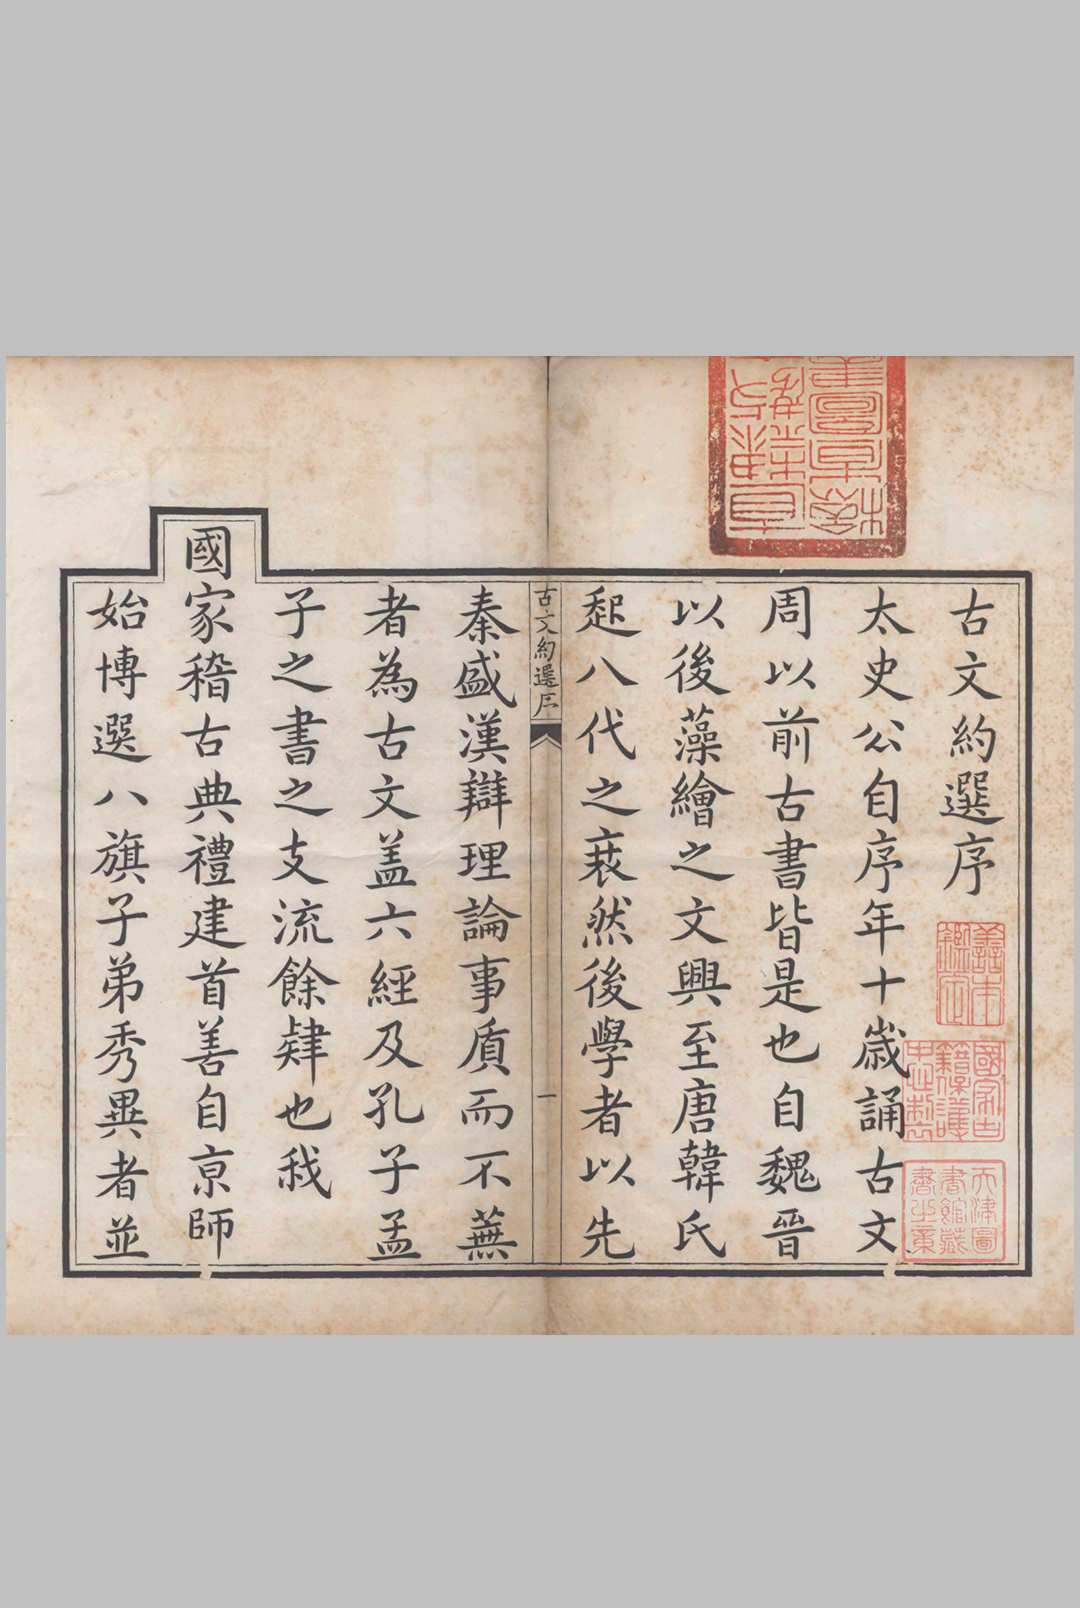 古文約選序
太史公自序年十歲誦古文
周以前古書皆是也自魏晉
以後藻繪之文興至唐韓氏
起八代之衰然後學者以先
古文約選序
一
秦盛漢辯理論事質而不蕪
者為古文蓋六經及孔子孟
子之書之支流餘肄也我
國家稽古典禮建首善自京師
始博選八旗子弟秀異者並
善本鑑定
國家古籍保護中心製
天津圖書館藏書之章